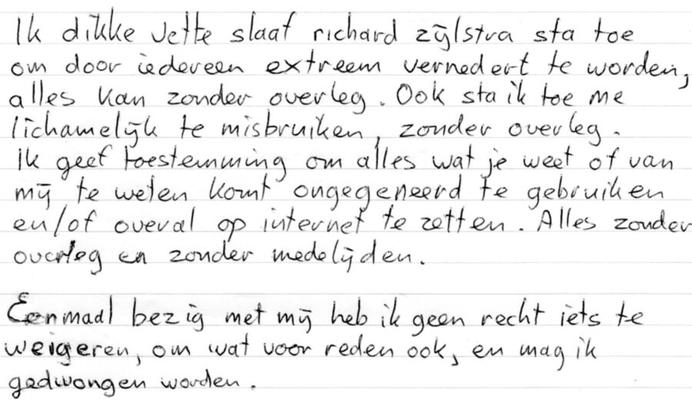 Ik dikke vette slaaf richard zijlstra sta toe
om door iedereen extreem vernedert te worden,
alles kan zonder overleg. Ook sta ik toe me
lichamelijk te misbruiken, zonder overleg.
Ik geef toestemming om alles wat je weet of van
mij te weten komt ongegeneerd te gebruiken
en/of overal op internet te zetten. Alles zonder
overleg en zonder medelijden.
Eenmaal bezig met mij heb ik geen recht iets te
weigeren, om wat voor reden ook, en mag ik
gedwongen worden.